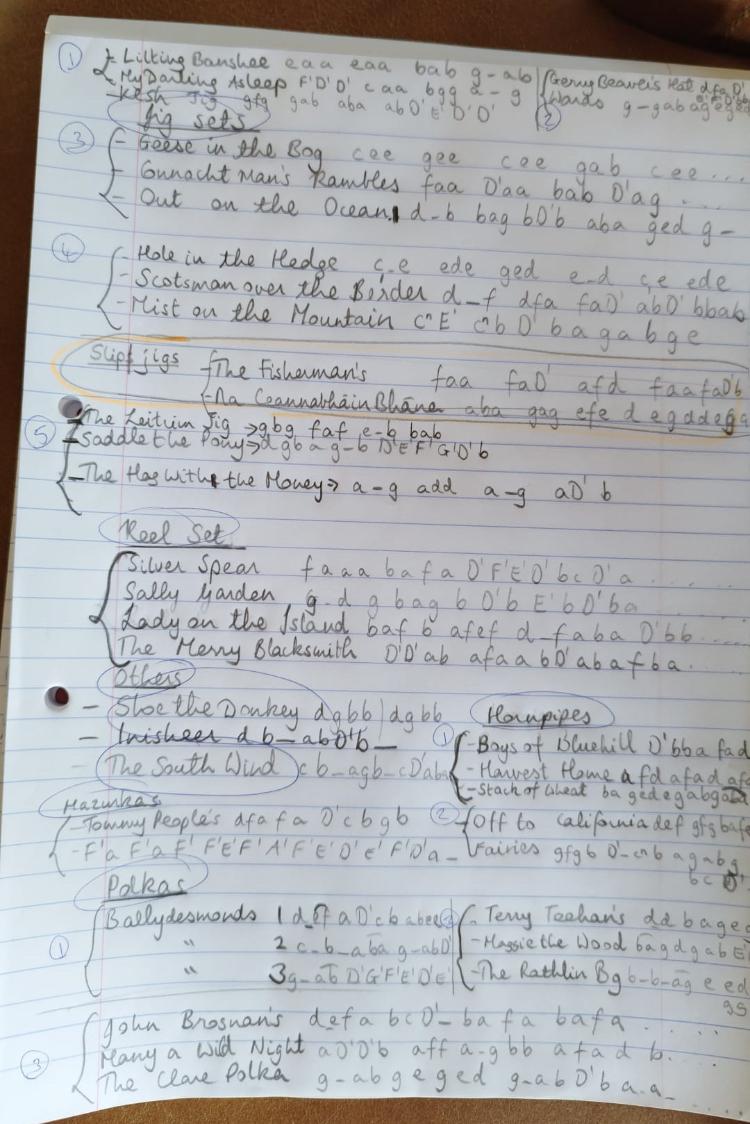 1 Lilting Banshee eaa eaa bab g-ab
My Darling Asleep F'D'D' caa bgg a-g
-Kesh Jig gfg gab aba abD'E'D'D'
2 Gerry Beaver's Hat dfa D'
Wards g-gab ag
Jig sets
3 - Geese in the Bog cee gee cee gab cee ...
- Connacht Man's Rambles faa D'aa bab D'ag ...
- Out on the Ocean d-b bag bD'b aba ged g-
4 - Hole in the Hedge c-e ede ged e-d c,e ede
- Scotsman over the Border d-f dfa faD' abD' bbab
- Mist on the Mountain E' b D' b a g a b g e
Slip jigs - The Fisherman's faa faD' afd faafaD'b
- Na Ceannabháin Bhána aba gag efe d egddega
5 - The Leitrim Jig → gbg faf e-b bab
- Saddle the Pony → dgb ag-b D'E'F'G'D'b
- The Hag With the Money → a-g add a-g aD'b
Reel Set
Silver Spear faaa bafa D'F'E'D' bc D'a ....
Sally Garden g-d g bag b D'b E'b D'ba
Lady on the Island baf b afef d-faba D'bb ....
The Merry Blacksmith D'D'ab afaa bD'ab afba.
Others
- Shoe the Donkey dgbb | dgbb
- Inisheer d b- abD'b -
- The South Wind c b-agb-cD'aba
Hornpipes
1 - Boys of Bluehill D'bba fad
- Harvest Home afd afad afd
- Stack of Wheat ba gedegabga
2 - Off to California def gfgbafe
- Fairies gfgb D'- b agabg
bc D'
Mazurkas
- Tommy People's dfa fa D'cbgb
- F'a F'a F' F'E'F' A'F'E'D' E' F'D'a -
Polkas
1 Ballydesmonds 1 def a D'cb abee
" 2 c-b-aba g-abD'
" 3 g-ab D'G'F'E'D'E'
2 - Terry Teehan's dd bageg
- Maggie the Wood bagdgabE'
- The Rathlin Bg b-b-ag e ed
gg
3 John Brosnan's defa bcD'- bafa bafa ....
Many a Wild Night aD'D'b aff a-g bb afad b ....
The Clare Polka g-ab ge ged g-ab D'b a-a- ....